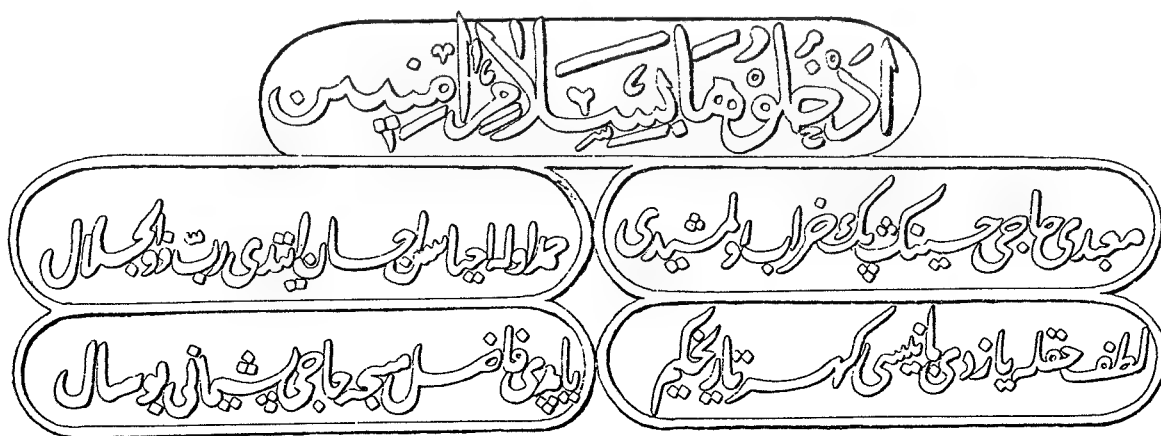 ادخلوها بسلام امنين
معبدى حاجى حسينك پك خراب اولمشيدى
حمد اولا احياسن احسان ايتدى رب ذوالجلال
لطف حقله يازدى بانيسى گهر تاريخيم
ياپدى فاضل مسجد حاجى بو سال